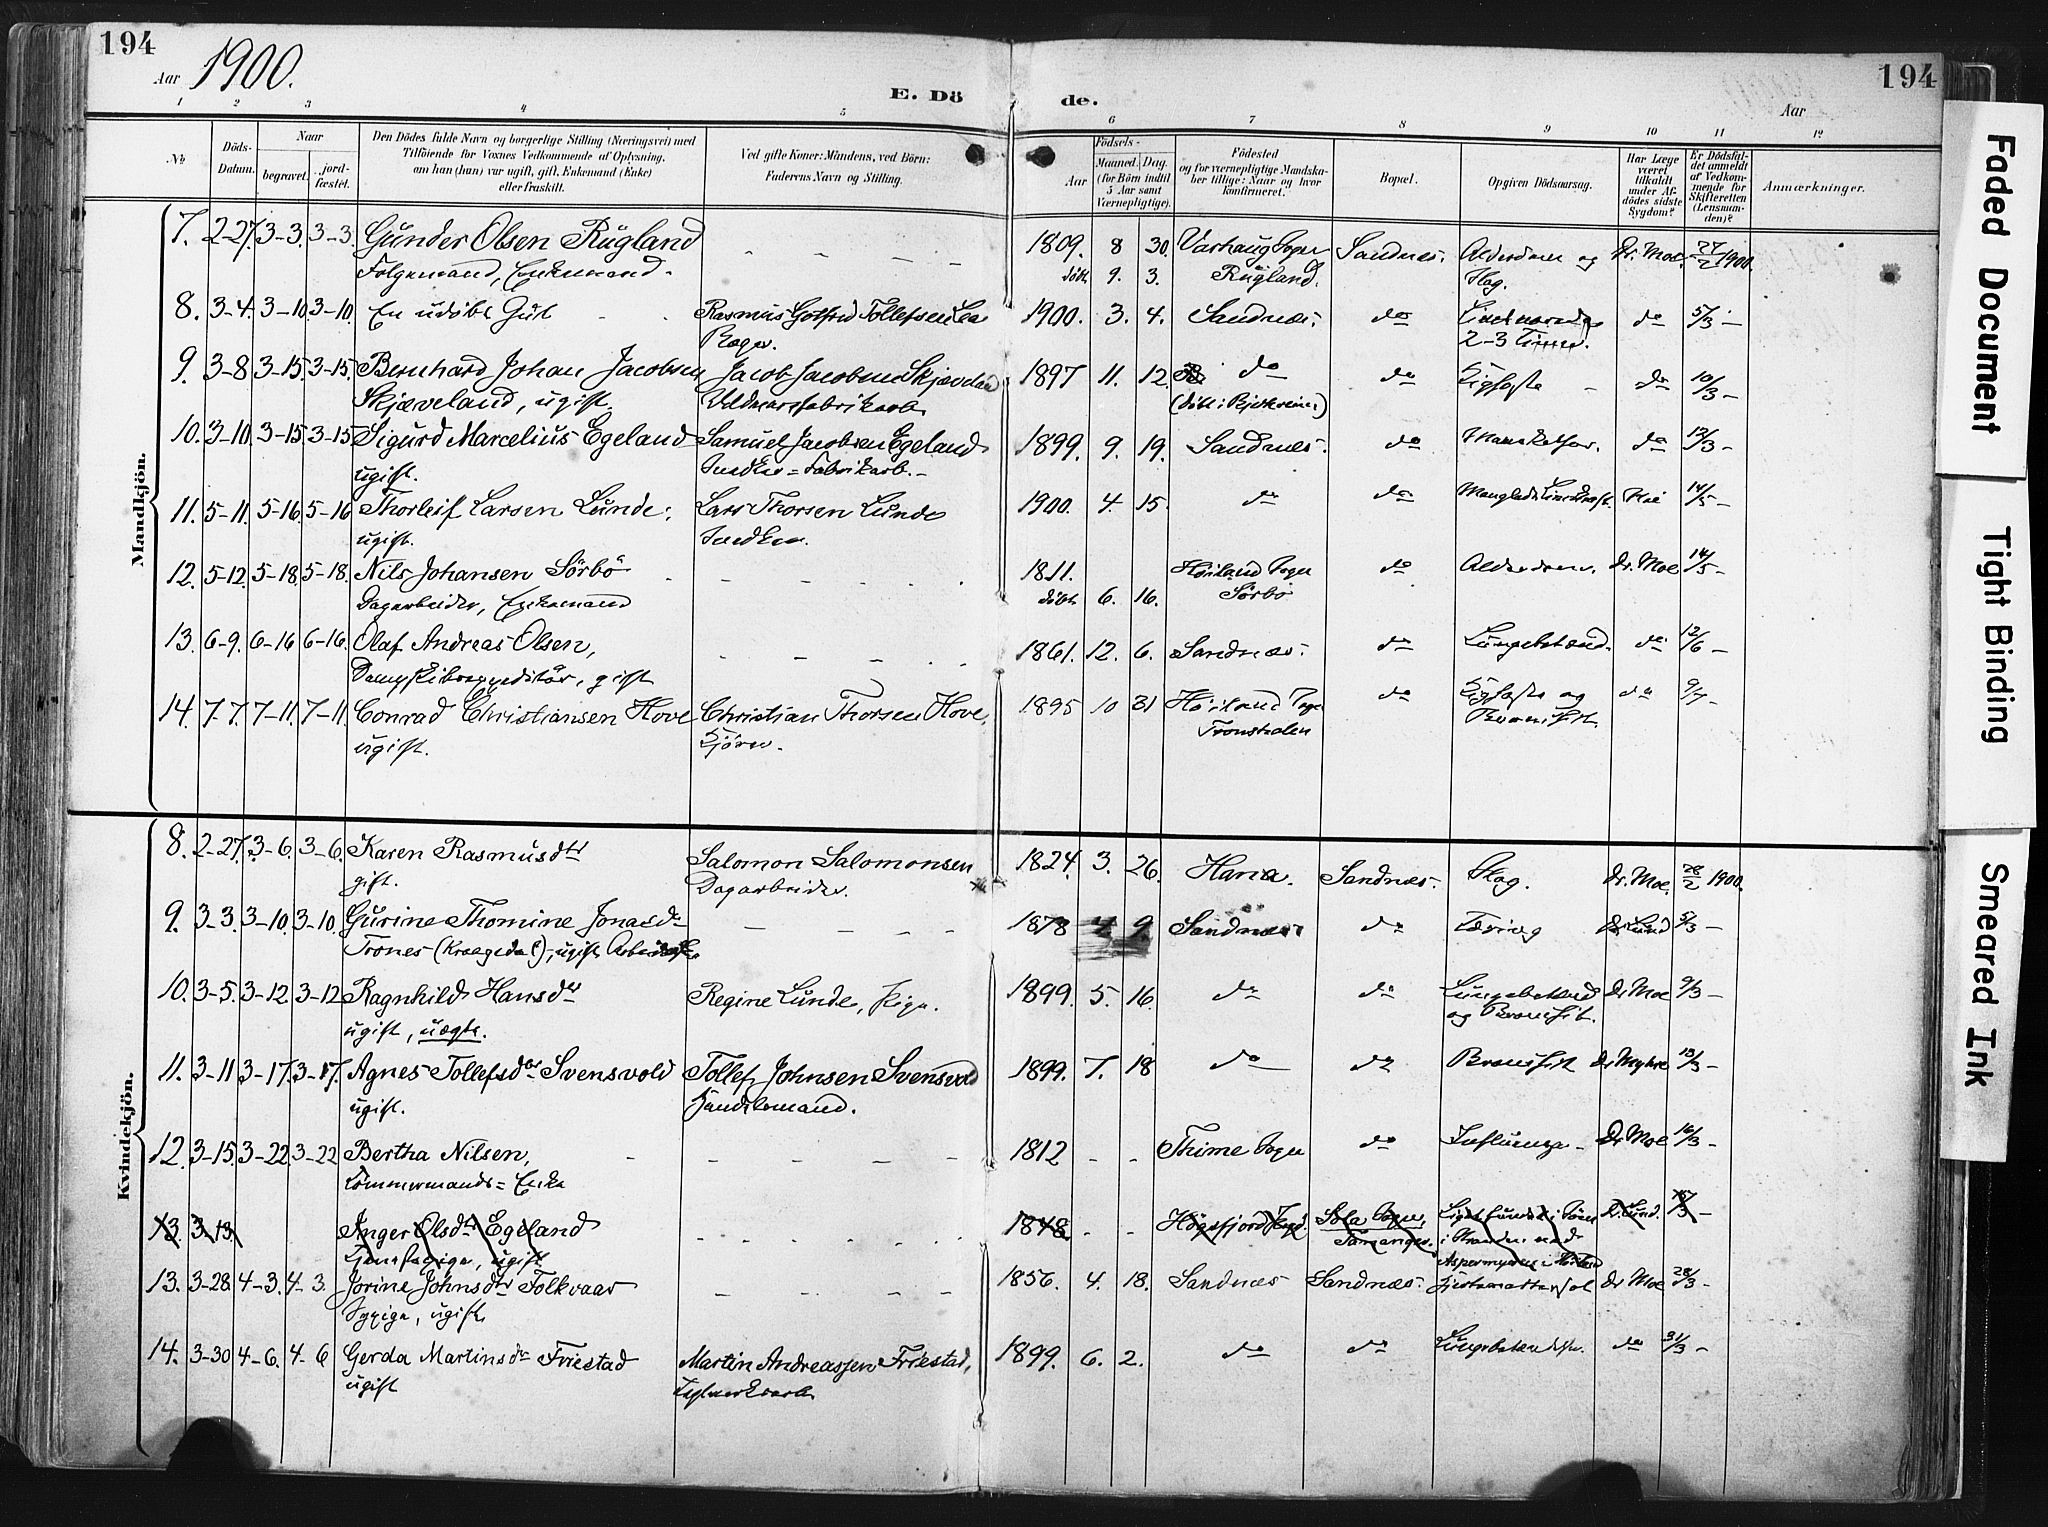 194
194
Aar 1900.
E. Dö de.
Aar
1 2 3 4 5 6 7 8 9 10 11 12
№
Döds-Datum.
Naar
begravet.
jordfæstet.
Den Dödes fulde Navn og borgerlige Stilling (Næringsvei) med
Tilföiende for Voxnes Vedkommende af Oplysning,
om han (hun) var ugift, gift, Enkemand (Enke)
eller fraskilt.
Ved gifte Koner: Mandens, ved Börn:
Faderens Navn og Stilling.
Födsels-
Aar
Maaned. Dag.
(for Börn indtil
5 Aar samt
Værnepligtige).
Födested
og for værnepligtige Mandskaber tillige: Naar og hvor
konfirmeret.
Bopæl.
Opgiven Dödsaarsag.
Har Læge
været
tilkaldt
under Afdödes sidste
Sygdom?
Er Dödsfaldet anmeldt
af Vedkommende for
Skifteretten
(Lensmanden)?
Anmærkninger.
Mandkjön.
7. 2-27. 3-3. 3-3. Gunder Olsen Rügland - - - - 1809. 8 30. Varhaug Sogn Sandnes. Alderdom og Dr. Moe. 27/2 1900.
Folgemand, Enkemand. döbt 9. 3. Rügland. Slag.
8. 3-4. 3-10. 3-10. En udöbt Gut - - Rasmus Gotfred Tollefsen Lea 1900. 3. 4. Sandnæs. do do 5/3 -
Bager. 2-3 Timer.
9. 3-8 3-15. 3-15. Bernhard Johan Jacobsen Jacob Jacobsen Skjæveland 1897 11. 12. do do Kighoste - do 10/3 -
Skjæveland, ugift. Uldvarefabrikarb. (döbt i Bjerkreim)
10. 3-10. 3-15. 3-15 Sigurd Marcelius Egeland Samuel Jacobsen Egeland 1899. 9. 19. Sandnes. do do 12/3 -
ugift. Snedker = Fabrikarb. -
11. 5-11. 5-16. 5-16 Thorleif Larsen Lunde. Lars Thorsen Lunde 1900. 4. 15. do do Manglede Livskraft. Moe 14/5 -
ugift. Snedker.
12. 5-12. 5-18. 5-18. Nils Johansen Sörbö - - - - - 1811. Höiland Sogn do Alderdom. Dr. Moe 14/5 -
Dagarbeider, Enkemand döbt 6. 16. Sörbö
13. 6-9. 6-16 6-16. Olaf Andreas Olsen, - - - - - 1861. 12. 6. Sandnæs. do Lungebetænd. do 12/6 -
Dampskibsexpeditör, gift
14. 7-7. 7-11. 7-11. Conrad Christiansen Hove Christian Thorsen Hove, 1895 10 31 Höiland Sogn do Kighoste og do 9/7 -
ugift. Kjörer. Tronsholen Bronchit.
Kvindekjön.
8. 2-27. 3-6. 3-6. Karen Rasmusdtr Salomon Salomonsen 1824. 3. 26. Hana. Sandnæs. Slag. Dr. Moe. 28/2 1900.
gift. Dagarbeider.
9. 3-3. 3-10. 3-10. Gurine Thomine Jonasdr - - - - 1878 4 9. Sandnæs do Tæring Dr. Lund 5/3 -
Trones (Kroegedal), ugift
10. 3-5. 3-12. 3-12 Ragnhild Hansdtr Regine Lunde, Pige. 1899. 5. 16. do do Lungebetænd Dr Moe 9/3 -
ugift, uægte. og Bronchit.
11. 3-11 3-17. 3-17. Agnes Tollefsdtr Svensvold Tollef Johnsen Svensvold 1899. 7. 18 do do Bronchit 13/3 -
ugift. Handelsmand.
12. 3-15. 3-22. 3-22 Bertha Nilsen, - - - - - 1812 - - Thime Sogn do Influenza - Dr Moe 16/3 -
Tömmermands = Enke
13. 3-13. Inger Olsdtr Egeland - - - - - 1848 - - Högsfjord Sogn. Sola Sogn, Dr. Lund.
Tjenestepige, ugift
13. 3-28. 4-3. 4-3. Jorine Johnsdtr Folkvaar - - - - 1856. 4. 18. Sandnæs Sandnæs. Dr Moe 28/3 -
Sypige, ugift
14. 3-30 4-6. 4-6 Gerda Martinsdr Friestad Martin Andreassen Friestad, 1899. 6. 2. do do do 31/3 -
ugift
Faded Document
Tight Binding
Smeared Ink